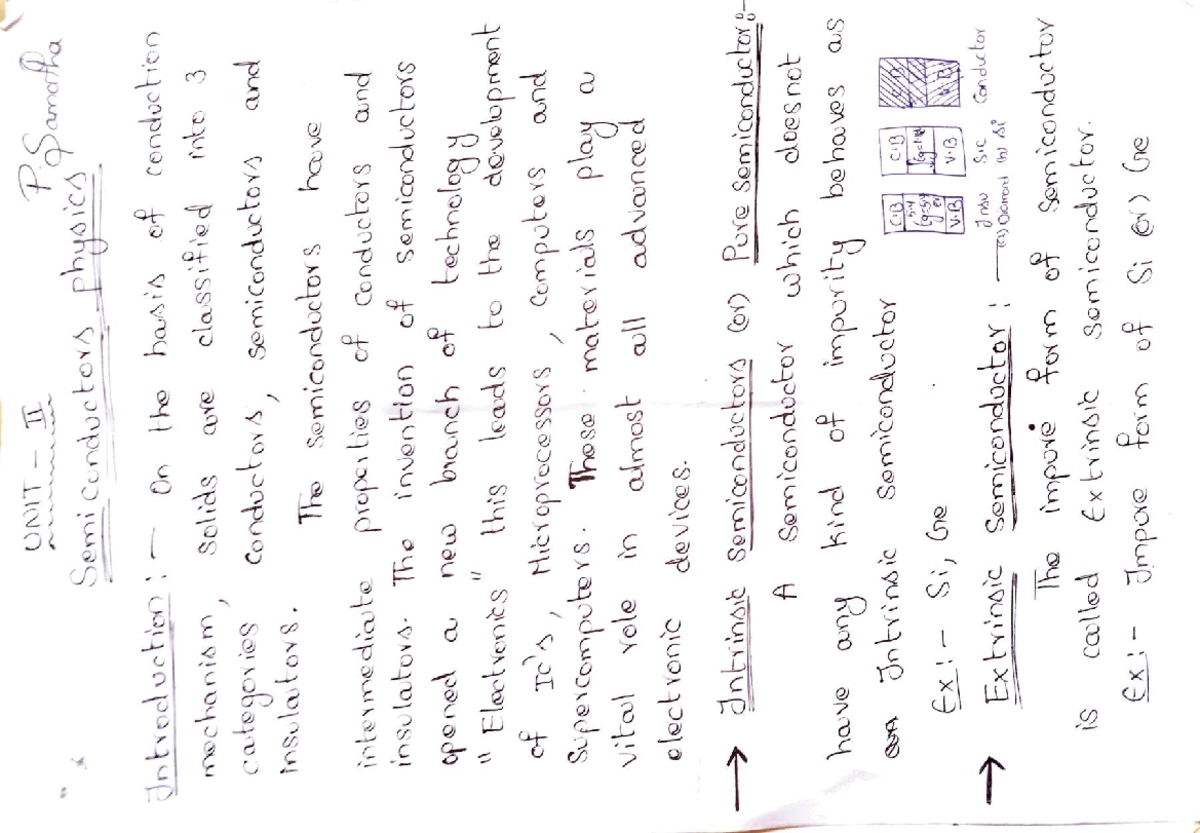 UNIT - II
P. Samatha
Semiconductors physics
Introduction :- On the basis of conduction
mechanism, solids are classified into 3
categories conductors, semiconductors and
insulators.
The semiconductors have
intermediate properties of conductors and
insulators. The invention of semiconductors
opened a new branch of technology
"Electronics" this leads to the development
of IC's, Microprocessors, computers and
Supercomputers. These materials play a
vital role in almost all advanced
electronic devices.
→ Intrinsic Semiconductors (or) Pure Semiconductor :-
A Semiconductor which doesnot
have any kind of impurity behaves as
an Intrinsic semiconductor
Ex :- Si, Ge
C.B
5.4
V.B
C.B
V.B
Insu
S.C
Conductor
Diamond
(b) Si
→ Extrinsic Semiconductor : —
The impure form of Semiconductor
is called Extrinsic Semiconductor.
Ex :- Impure form of Si (or) Ge